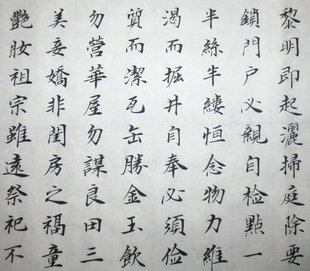 黎明即起灑掃庭除要
鎖門戶必親自检點一
半絲半縷恒念物力維
渴而掘井自奉必須俭
質而潔瓦缶勝金玉飲
勿營華屋勿謀良田三
美妾嬌非閨房之福童
艷妝祖宗雖遠祭祀不